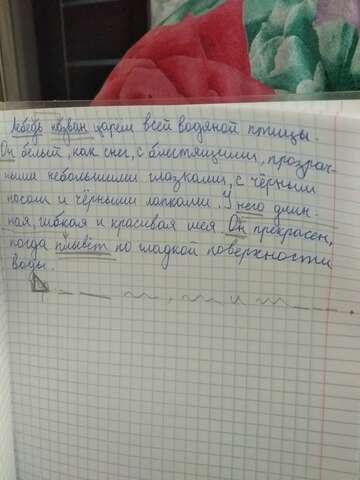 Лебедь назван царем всей водяной птицы.
Он белый, как снег, с блестящими, прозрач-
ными небольшими глазками, с чёрными
носом и чёрными лапками. У него длин-
ная, гибкая и красивая шея. Он прекрасен,
когда плывёт по гладкой поверхности
воды.